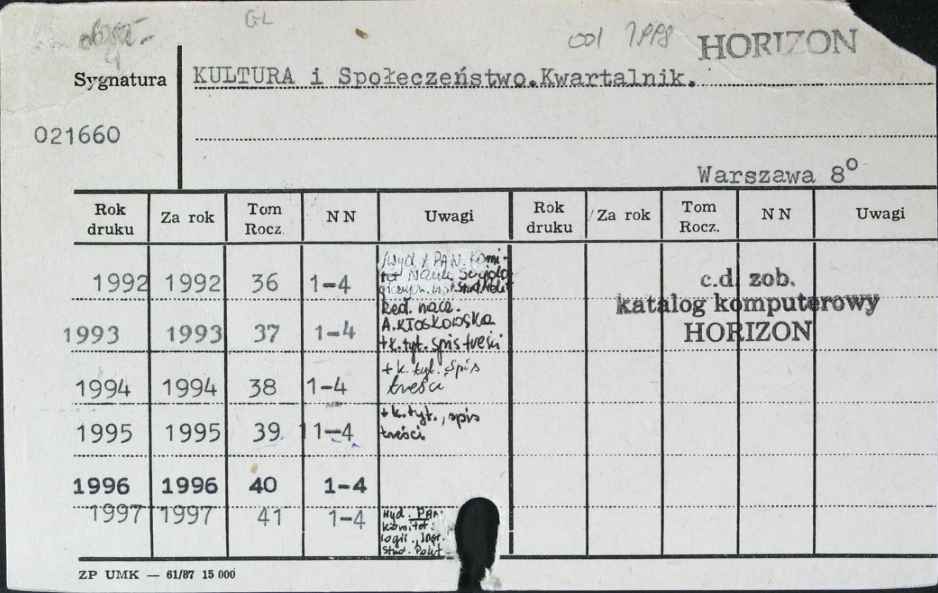 GL
001 1998
HORIZON
Sygnatura
KULTURA i Społeczeństwo.Kwartalnik.
021660
Warszawa 8°
Rok druku Za rok Tom Rocz. NN Uwagi Rok druku Za rok Tom Rocz. NN Uwagi
1992 1992 36 1-4
Wyd. PAN. Komi-
tet Nauk Socjolo
c.d. zob.
katalog komputerowy
HORIZON
Red. nacz.
A.Kłoskowska
1993 1993 37 1-4
+k. tyt. spis treści
1994 1994 38 1-4
+k. tyl. spis
treści
1995 1995 39 1-4
+k. tyt., spis
treści
1996 1996 40 1-4
1997 1997 41 1-4
Wyd. PAN
Komitet
logii., Inst.
Stud. Polit.
ZP UMK — 61/87 15 000